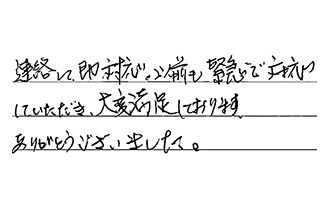 連絡して、即対応。以前も緊急で対応
していただき、大変満足しております
ありがとうございました。